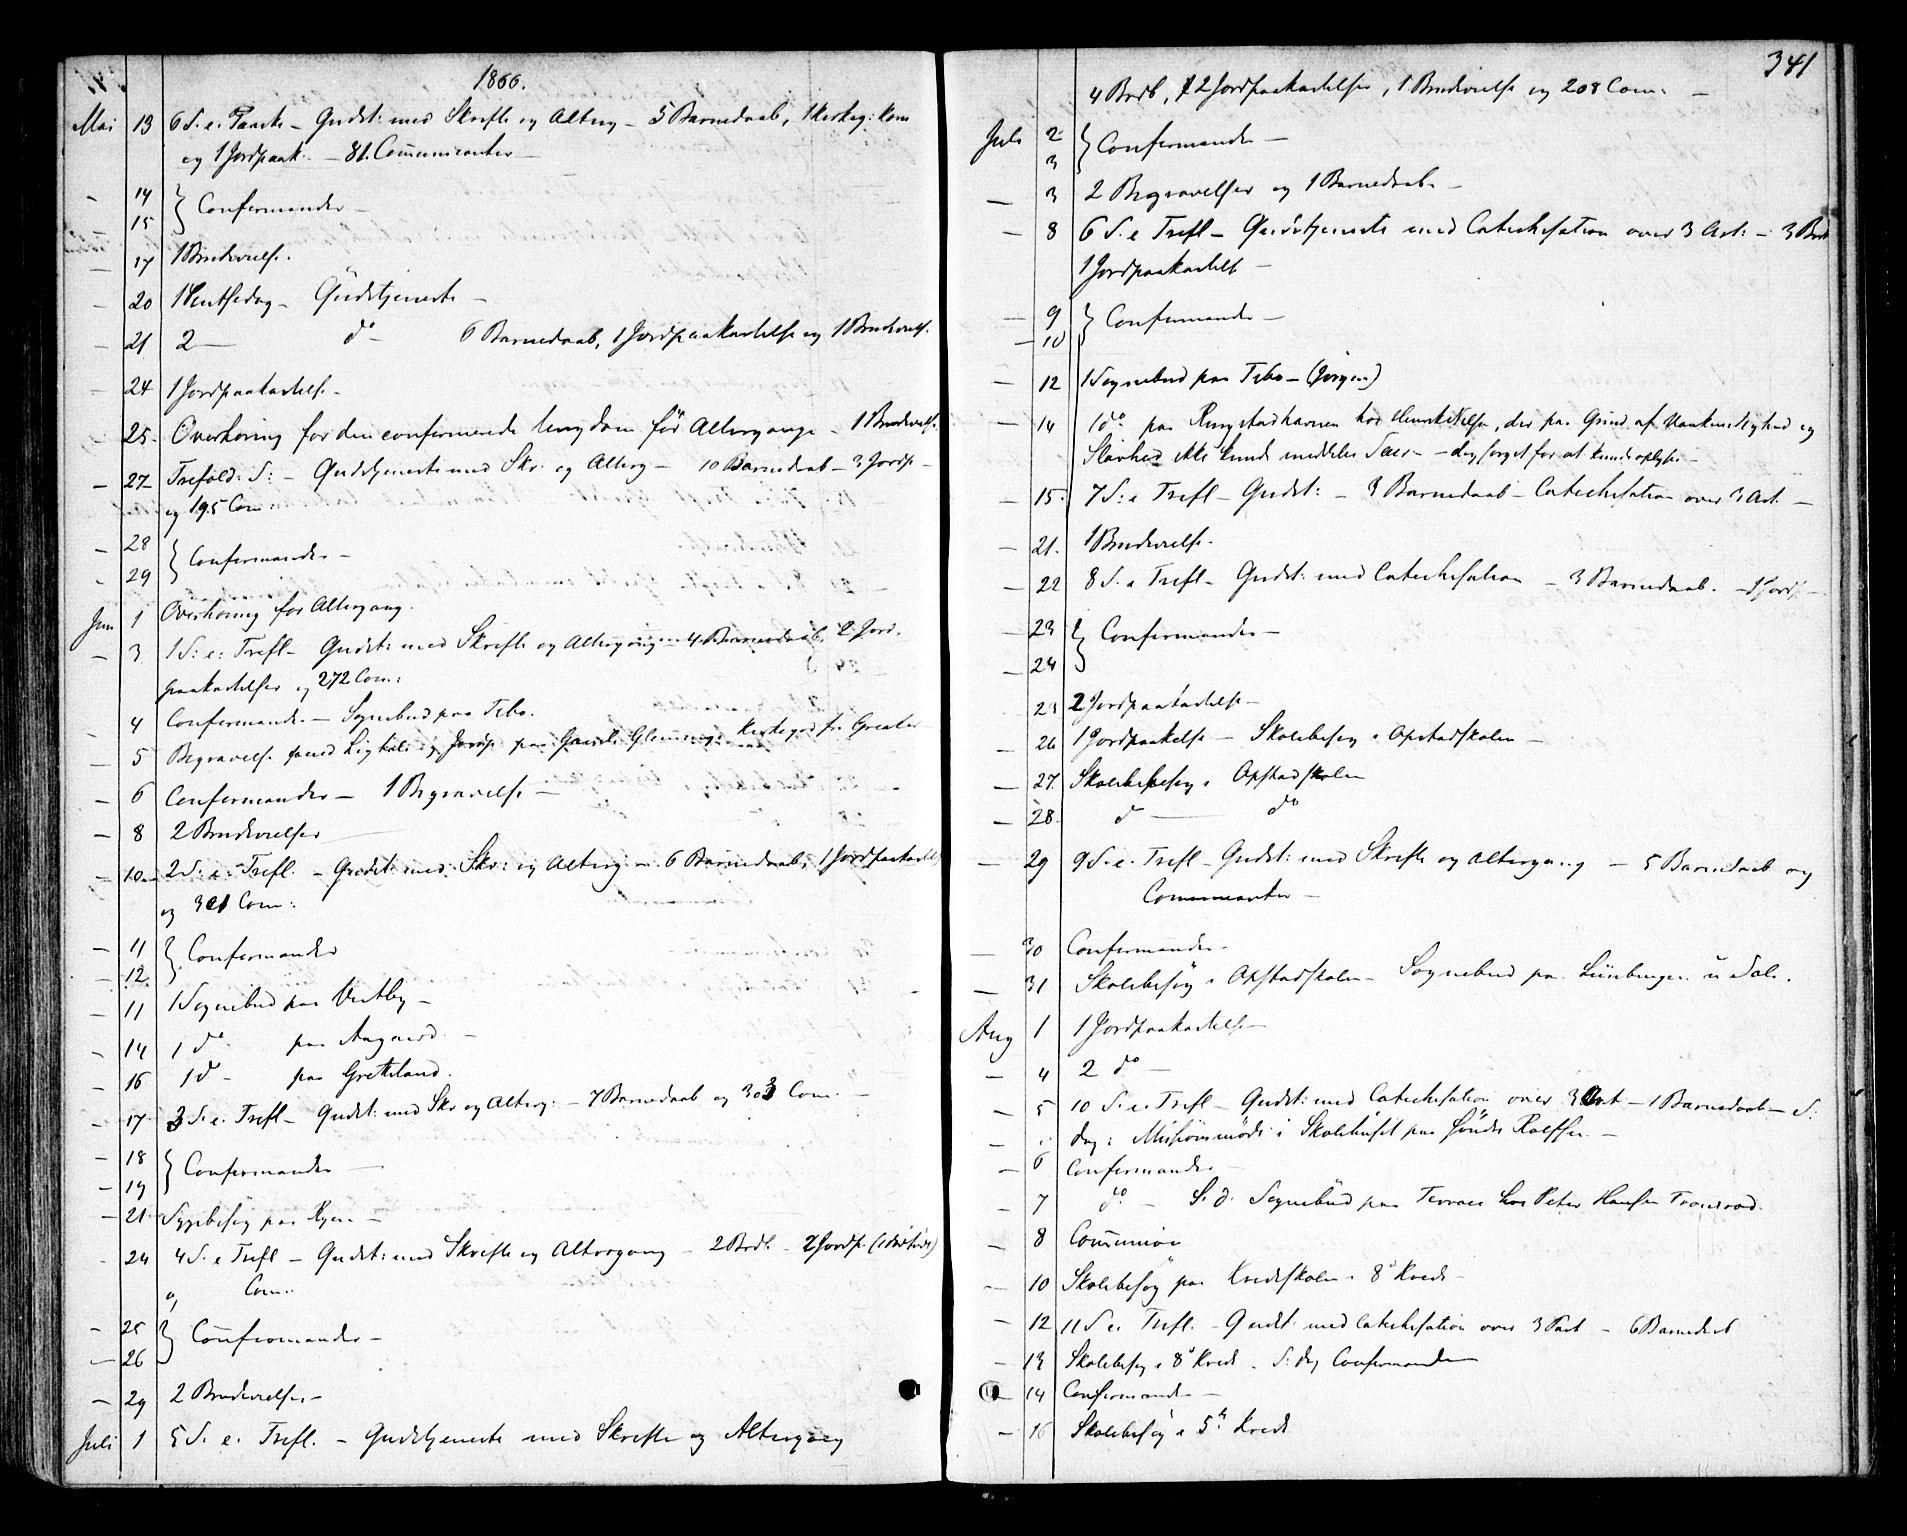 1866.
Mai 13 6 S. e. Paaske – Gudst: med Skrifte og Alterg – 5 Barnedaab, 1 Kirkeg: kone
og 1 Jordpaak. – 81. Communicanter –
– 14
15 } Confirmander –
– 17 1 Brudevielse.
– 20 1 Pintsedag – Gudstjeneste –
– 21 2 – do – 6 Barnedaab, 1 Jordpaakastelse og 1 Brudevielse.
– 24 1 Jordpaakastelse –
– 25. Overhøring for den confirmerede Ungdom før Altergange – 1 Brudeviels.
– 27 Trefold: S: – Gudstjeneste med Skr. og Alterg – 10 Barnedaab – 3 Jordp –
og 195 Com:
– 28
– 29 } Confirmander –
Juni 1 Overhøring før Altergang.
– 3 1 S: e: Trefl – Gudst: med Skrifte og Altergang – 4 Barnedaab, 2 Jord-
paakastelser og 272 Com:
– 4 Confirmander – Sognebud paa Tebo.
– 5 Begravelse med Ligtale og Jordp. paa Glemminge Kirkegaard
– 6 Confirmander – 1 Begravelse –
– 8 2 Brudevielser
– 10 2 S. e. Trefl. – Gudst: med Skr: og Alterg – 6 Barnedaab, 1 Jordpaakastel
og 301 Com:
– 11
– 12 } Confirmander
– 11 1 Sognebud paa Vestby –
– 14 1 do paa Aagaard –
– 16 1 do – paa Grotteland.
– 17 3 S. e. Trefl – Gudst: med Skr og Alterg: – 7 Barnedaab og 303 Com. –
– 18
– 19 } Confirmander –
– 21 Sygebesøg paa Ryen –
– 24 4 S. e Trefl – Gudst: med Skrifte og Altergang – 2 Brdb. – 2 Jordp. (1 dødfødt)
og Com:
– 25
– 26 } Confirmander –
– 29 2 Brudevielser –
Juli 1 5 S. e. Trefl. – Gudstjeneste med Skrifte og Altergang
341
4 Brdb, 2 Jordpaakastelser, 1 Brudevielse og 208 Com: –
Juli 2
3 } Confirmander –
– 3 2 Begravelser og 1 Barnedaab –
– 8 6 S. e Trefl – Gudstjeneste med Catechisation over 3 Art: – 3 Brd
1 Jordpaakastels –
– 9
– 10 } Confirmander –
– 12 1 Sognebud paa Tebo – (Jørgen)
– 14 1 do paa hos der paa Grund af og
Sløvhed ikke kunde meddeles Sacr. –
– 15. 7 S: e Trefl – Gudst: – 3 Barnedaab – Catechisation over 3 Art. –
– 21. 1 Brudevielse.
– 22 8 S. e Trefl – Gudst: med Catechisation – 3 Barnedaab. – 1 Jordp –
– 23
24 } Confirmander –
23 2 Jordpaakastelse –
– 26 1 Jordpaakelse – Skolebesøg i Opstadskolen –
– 27. Skolebesøg i Opstadskolen
– 28. d – do
– 29 9 S. e. Trefl – Gudst: med Skrifte og Altergang – 5 Barnedaab og
Communicanter –
– 30 Confirmander –
– 31 Skolebesøg i Opstadskolen – Sognebud paa
Aug 1 1 Jordpaakastelse –
– 4 2 do –
– 5 10 S. e. Trefl – Gudst: med Catechisation over 3 Art – 1 Barnedaab – S:
– dag: Missionsmøde i Skolehuset paa Søndre Rolfsø. –
– 6 Confirmander –
– 7 do – S. d. Sognebud paa hos Peter Hansen
– 8 Communion
– 10 Skolebesøg paa Kredsskolen i 8de Kreds –
– 12 11 S e. Trefl. – Gudst: med Catechisation over 3 Part – 6 Barnedaab
– 13 Skolebesøg i 8de Kreds – S: dag Confirmander
– 14 Confirmander –
– 16 Skolebesøg i 5te Kreds